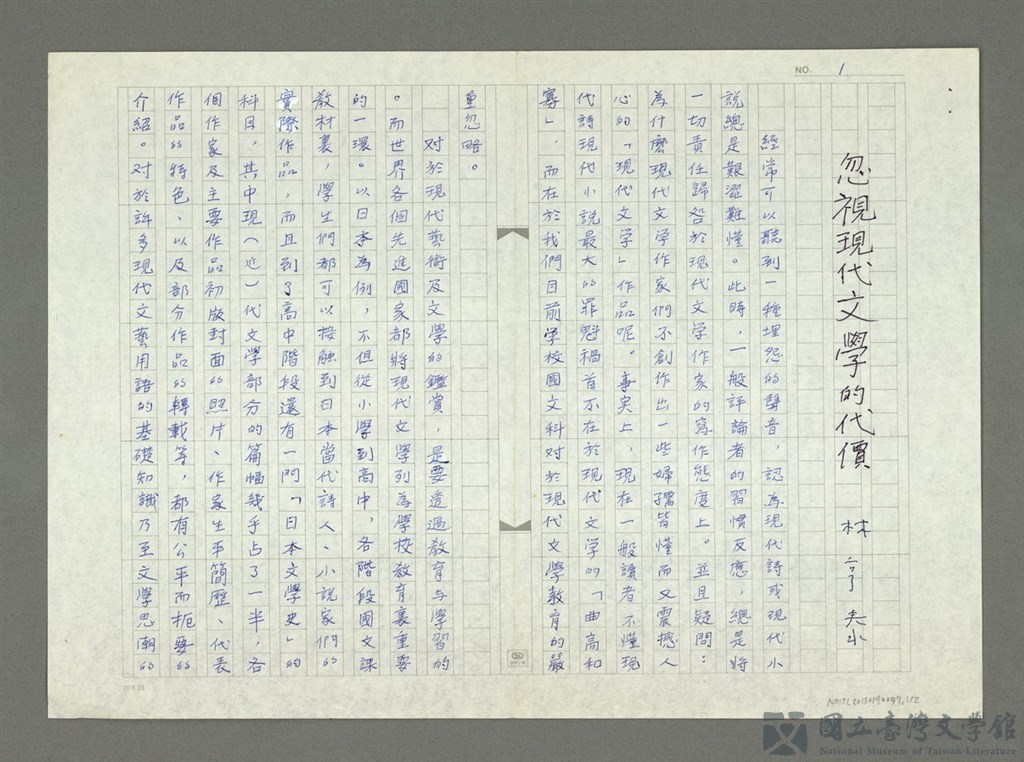 NO. 1
忽視現代文學的代價
林亨泰
經常可以聽到一種埋怨的聲音，認為現代詩或現代小
說總是艱澀難懂。此時，一般評論者的習慣反應，總是將
一切責任歸咎於現代文学作家的寫作態度上。並且疑問：
為什麼現代文学作家們不創作出一些婦孺皆懂而又震撼人
心的「現代文学」作品呢。事实上，現在一般讀者不懂現
代詩現代小說最大的罪魁禍首不在於現代文学的「曲高和
寡」，而在於我們目前学校國文科对於現代文學教育的嚴
重忽略。
对於現代藝術及文學的鑑賞，是要透過教育与學習的
。而世界各個先進國家都將現代文學列為學校教育裏重要
的一環。以日本為例，不但從小學到高中，各階段國文課
教材裏，學生們都可以接触到日本當代詩人、小說家們的
實際作品，而且到了高中階段還有一門「日本文學史」的
科目，其中現（近）代文學部分的篇幅幾乎占了一半，各
個作家及主要作品初版封面的照片、作家生平簡歷、代表
作品的特色、以及部分作品的轉載等，都有公平而扼要的
介紹。对於許多現代文藝用語的基礎知識乃至文學思潮的
20×25
NMTL20130170047,1/2
國立臺灣文学館
National Museum of Taiwan Literature